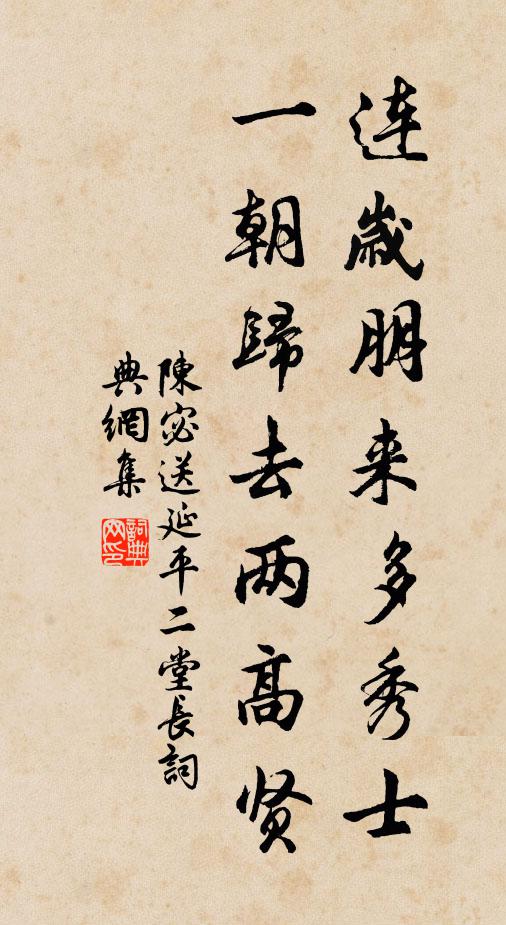 连歲朋来多秀士
一朝歸去两高贤
陳宓送延平二堂長詞
典網集
詞典网印